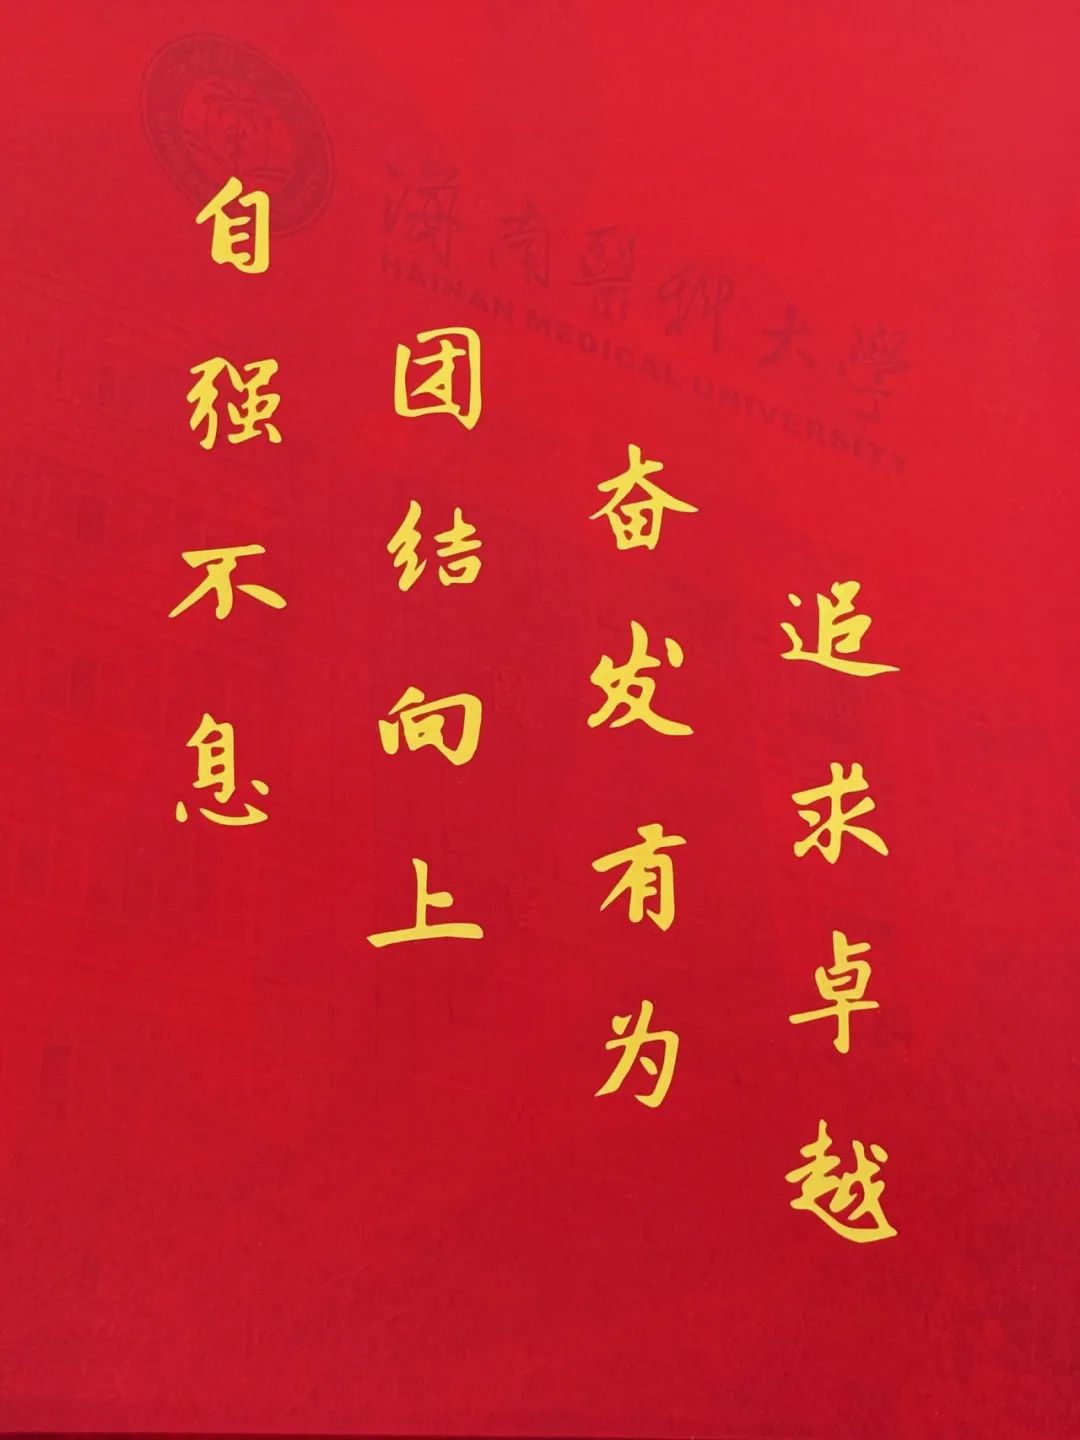 海南醫科大學
HAINAN MEDICAL UNIVERSITY
自强不息
团结向上
奋发有为
追求卓越